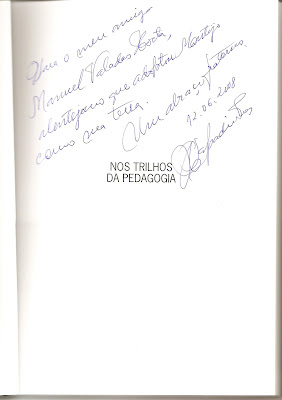 Para o meu amigo
Manuel Valadas Horta,
alentejano que adoptou Montijo
como sua terra.
Um abraço fraterno
12.06.2008
NOS TRILHOS
DA PEDAGOGIA